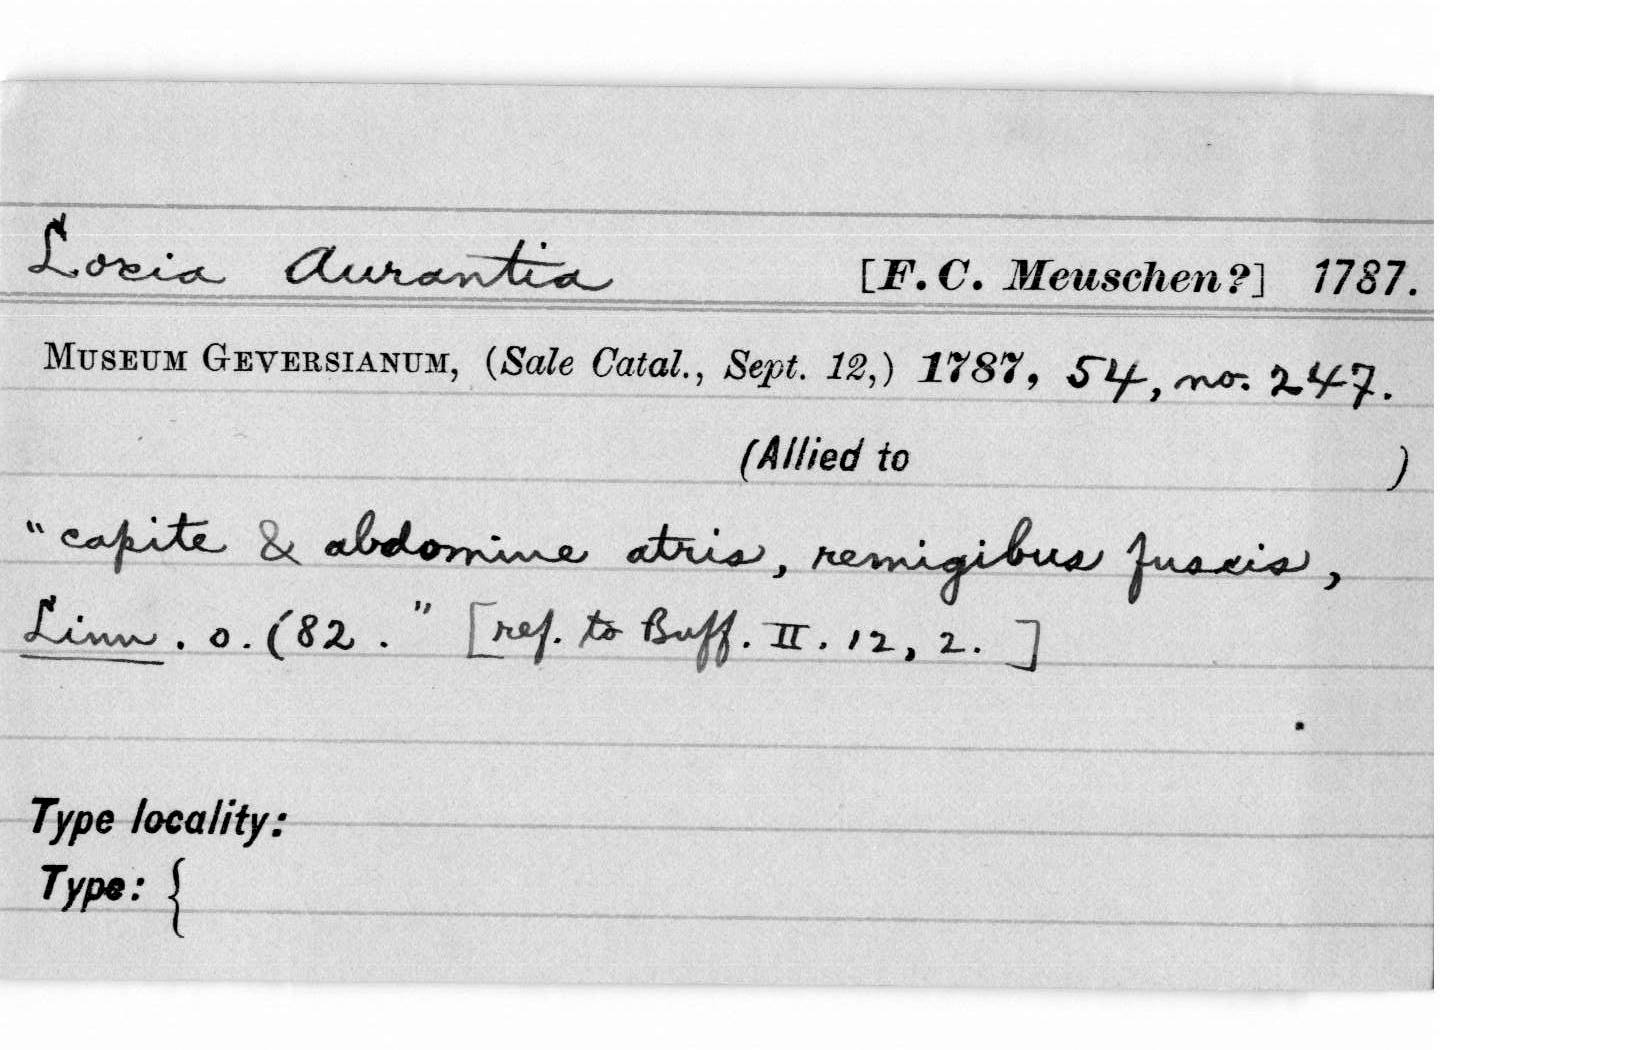 Loxia Aurantia [F. C. Meuschen?] 1787.
MUSEUM GEVERSIANUM, (Sale Catal., Sept. 12,) 1787, 54, no. 247.
(Allied to )
"capite & abdomine atris, remigibus fuscis,
Linn. o. (82." [ref. to Buff. II. 12, 2.]
Type locality:
Type: {